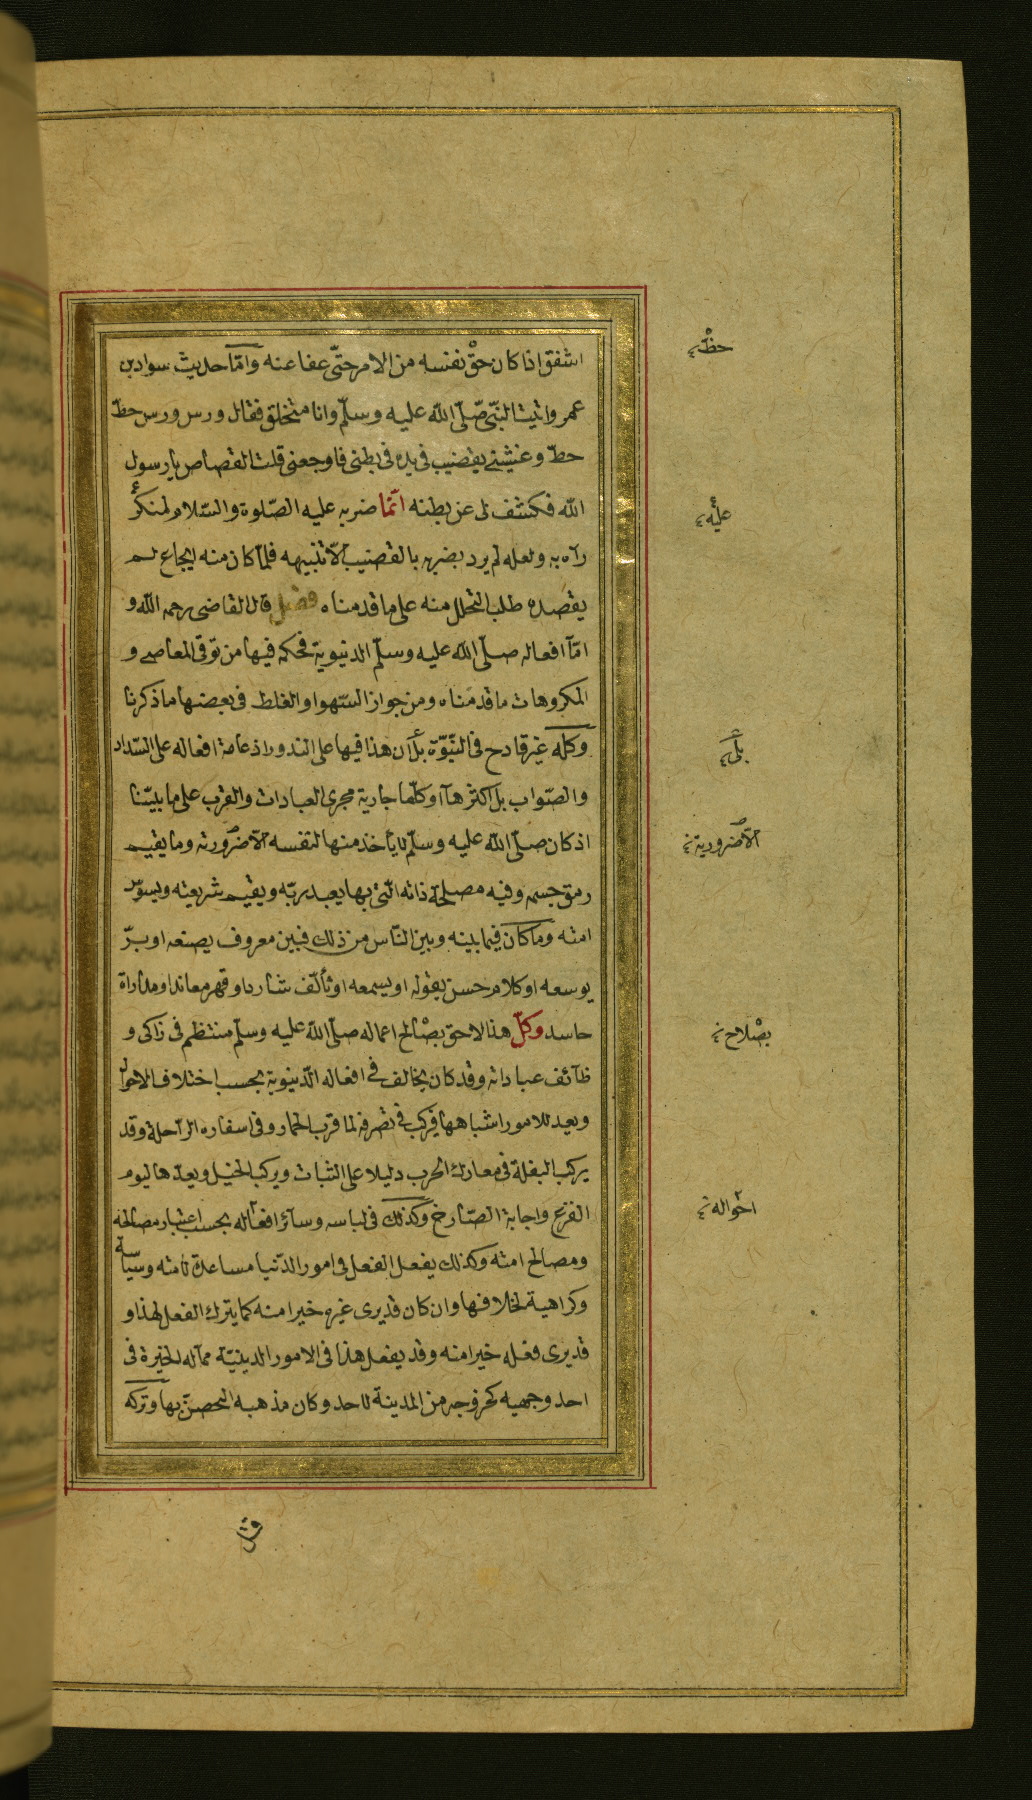 اشفق اذا كان حقّ نفسه من الامر حتّى عفا عنه وامّا حديث سواد بن
عمرو اتيت النّبيّ صلّى الله عليه وسلّم وانا متخلق فقال ورس ورس حطّ
حطّ وغشيني بقضيب في يده في بطني فاوجعني قلت القصاص يا رسول
الله فكشف لي عن بطنه انّما ضربه عليه الصّلوة والسّلام لمنكر
رآه به ولعله لم يرد بضربه بالقضيب الّا تنبيهه فلمّا كان منه ايجاع لم
يقصده طلب التحلل منه على ما قدمناه فصل قال القاضي رحمه الله و
امّا افعاله صلّى الله عليه وسلّم الدنيوية فحكمه فيها من توقي المعاصي و
المكروهات ما قدمناه ومن جواز السّهو او الغلط في بعضها ما ذكرنا
وكلّه غير قادح في النّبوّة بل ان هذا فيها على الندور اذ عامة افعاله على السّداد
والصّواب بل اكثرها او كلّها جارية مجرى العبادات والقرب على ما بيّنّا
اذ كان صلّى الله عليه وسلّم لا ياخذ منها لنفسه الّا ضرورته وما يقيم
رمق جسمه وفيه مصلحة ذاته الّتي بها يعبد ربّه ويقيم شريعته ويسوس
امته وما كان فيما بينه وبين النّاس من ذلك فبين معروف يصنعه او برّ
يوسعه او كلام حسن يقوله او يسمعه او تألّف شارد او قهر معاند او مداراة
حاسد وكلّ هذا لاحق بصالح اعماله صلّى الله عليه وسلّم منتظم في زاكي و
ظائف عباداته وقد كان يخالف في افعاله الدّنيوية بحسب اختلاف الاحوال
ويعد للامور اشباهها فيركب في تصرفه لما قرب الحمار وفي اسفاره الرّاحلة وقد
يركب البغلة في معارك الحرب دليلا على الثبات ويركب الخيل ويعدّها ليوم
الفزع واجابة الصّارخ وكذلك في لباسه وسائر افعاله بحسب اعتبار مصالحه
ومصالح امته وكذلك يفعل الفعل في امور الدّنيا مساعدة لامته وسياسة
وكراهية لخلافها وان كان قد يرى غيره خيرا منه كما يترك الفعل لهذا و
قد يرى فعله خيرا منه وقد يفعل هذا في الامور الدينيّة مما له الخيرة في
احد وجهيه كخروجه من المدينة لاحد وكان مذهبه التحصن بها وتركه
حظّ
عليه
بلى
الّا ضرورية
بصلاح
احواله
قتل